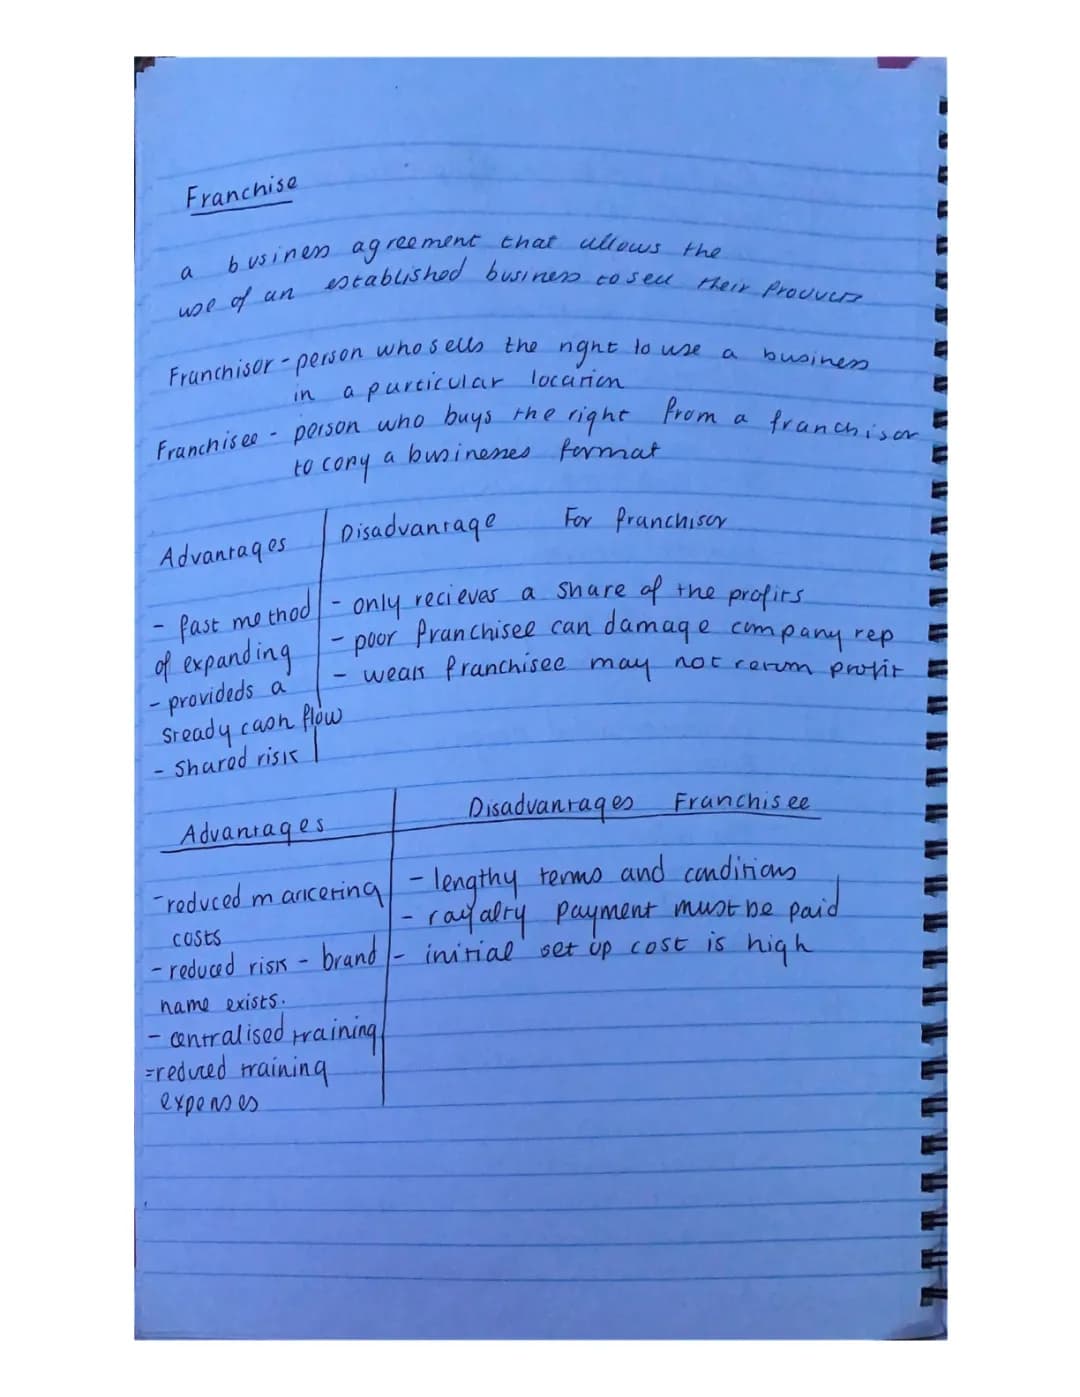 Franchise
a business agreement that allows the
use of an established business to sell their products
Franchisor - person who sells the right to use a business
in a particular location
Franchisee - person who buys the right from a franchisor
to copy a businesses format
Advantages Disadvantage For franchisor
- fast method - only recieves a share of the profits
of expanding - poor franchisee can damage company rep
- provideds a - weak franchisee may not return profit
steady cash flow
- Shared risk
Advantages Disadvantages Franchisee
- reduced marketing - lengthy terms and conditions
costs - royalty payment must be paid
- reduced risk - brand - initial set up cost is high
name exists.
- centralised training
= reduced training
expenses